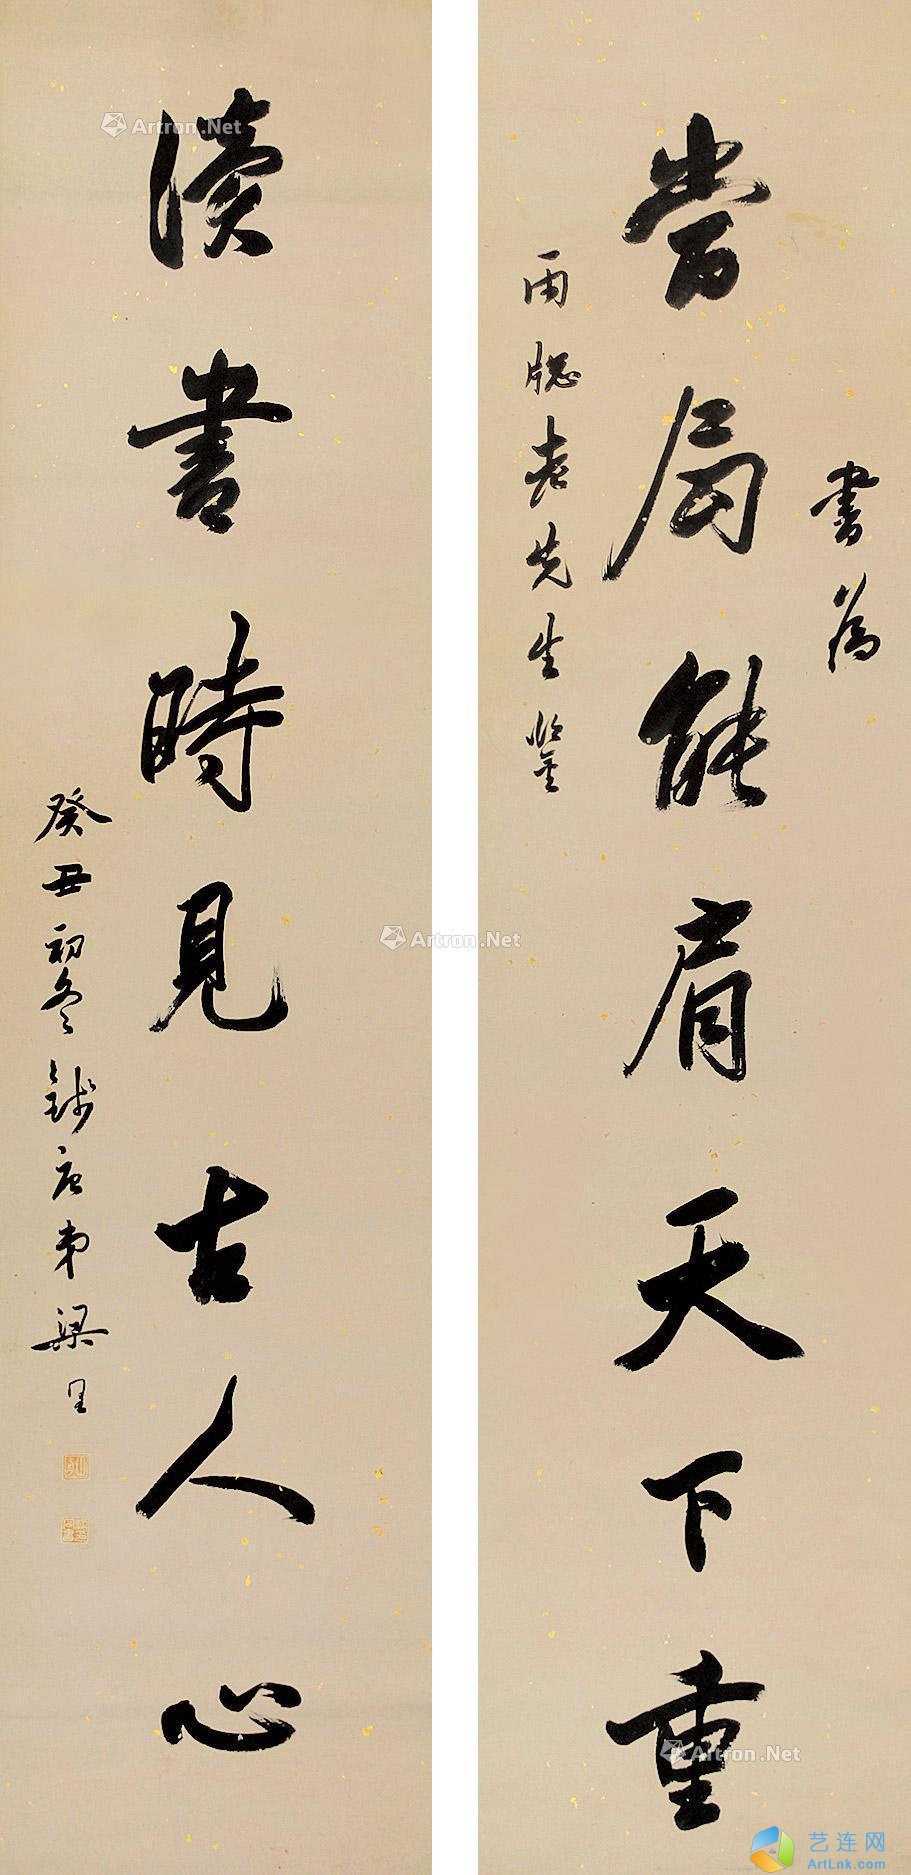 書為
當局能肩天下重
雨牕老先生鑒
讀書時見古人心
癸丑初冬錢唐弟梁
Artron.Net
Artron.Net
Artron.Net
艺连网
ArtLnk.com